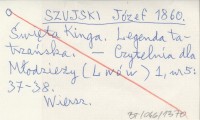 SZUJSKI Józef 1860.
Święta Kinga. Legenda ta-
trzańska. — Czytelnia dla
Młodzieży (Lwów) 1, nr 5:
37-38.
Wiersz.